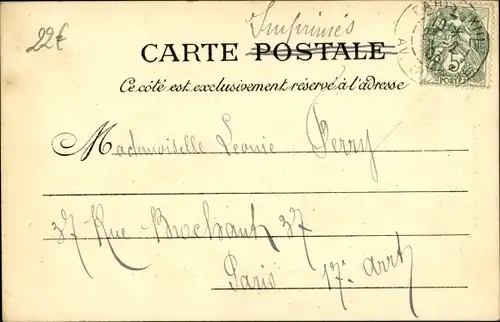 22€
Imprimés
CARTE POSTALE
Ce côté est exclusivement réservé à l'adresse
Mademoiselle Leonie Perry
37 Rue Brochant 37
Paris 17e arrt
PARIS
POSTES